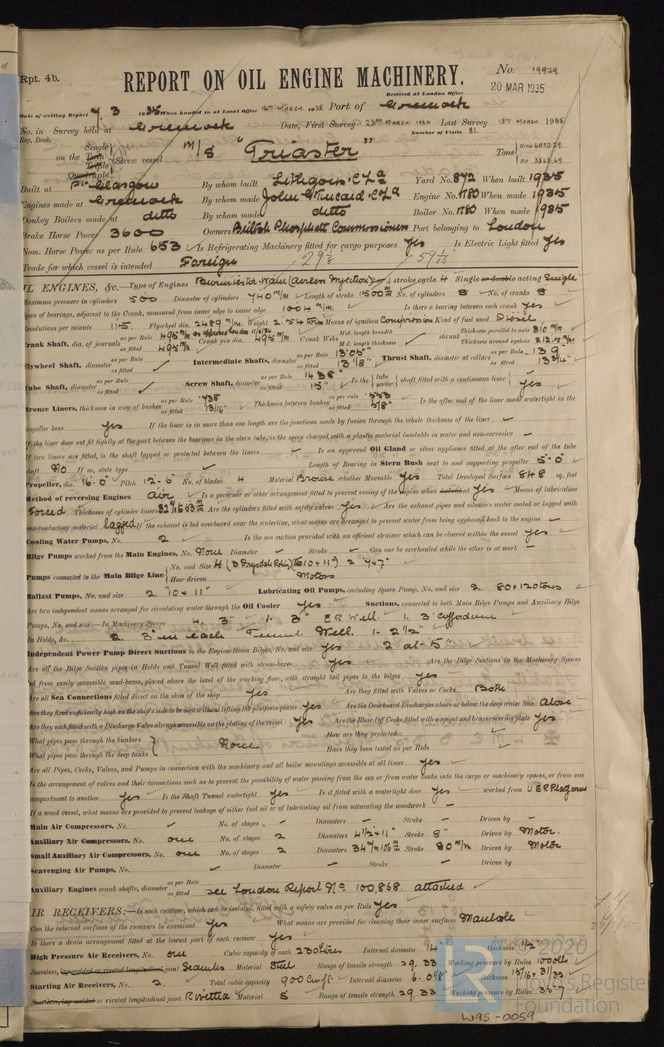 Rpt. 4b.
REPORT ON OIL ENGINE MACHINERY.
No. 19929
Received at London Office 20 MAR 1935
Date of writing Report 7.3 1935 When handed in at Local Office 16TH MARCH 1935 Port of Greenock
No. in Survey held at Greenock Date, First Survey 23RD MARCH 1934 Last Survey 15TH MARCH 1935
Reg. Book. Number of Visits 81
on the Single Twin Triple Quadruple Screw vessel M/S "Triaster" Tons
Built at Pt Glasgow By whom built Lithgows Yard No. 872 When built 1935
Engines made at Greenock By whom made John G. Kincaid & Co Ld Engine No. K80 When made 1935
Donkey Boilers made at ditto By whom made ditto Boiler No. K80 When made 1935
Brake Horse Power 3600 Owners British Phosphate Commission Port belonging to London
Nom. Horse Power as per Rule 653 Is Refrigerating Machinery fitted for cargo purposes Yes Is Electric Light fitted Yes
Trade for which vessel is intended Foreign
IL ENGINES, &c.—Type of Engines Burmeister Wain (Airless Injection) 2 or 4 stroke cycle 4 Single or double acting Single
Maximum pressure in cylinders 500 Diameter of cylinders 740 m/m Length of stroke 1500 m/m No. of cylinders 8 No. of cranks 8
Span of bearings, adjacent to the Crank, measured from inner edge to inner edge 1004 m/m Is there a bearing between each crank Yes
Revolutions per minute 115 Flywheel dia. 2489 m/m Weight 2.54 tons Means of ignition Compression Kind of fuel used Diesel
Crank Shaft, dia. of journals as per Rule 495 m/m as fitted 495 m/m Crank pin dia. 495 m/m Crank Webs Mid. length breadth Mid. length thickness shrunk Thickness parallel to axis 310 m/m Thickness around eyehole
Flywheel Shaft, diameter as per Rule as fitted Intermediate Shafts, diameter as per Rule 13.05" as fitted 13 1/8" Thrust Shaft, diameter at collars as per Rule 13.9 as fitted 13 3/4"
Tube Shaft, diameter as per Rule as fitted Screw Shaft, diameter as per Rule 14.38" as fitted 15" Is the tube screw shaft fitted with a continuous liner Yes
Bronze Liners, thickness in way of bushes as per Rule .738 as fitted 13/16" Thickness between bushes as per rule .553 as fitted 5/8" Is the after end of the liner made watertight in the
propeller boss Yes If the liner is in more than one length are the junctions made by fusion through the whole thickness of the liner
If the liner does not fit tightly at the part between the bearings in the stern tube, is the space charged with a plastic material insoluble in water and non-corrosive
If two liners are fitted, is the shaft lapped or protected between the liners Is an approved Oil Gland or other appliance fitted at the after end of the tube
shaft No If so, state type Length of Bearing in Stern Bush next to and supporting propeller 5'-0"
Propeller, dia. 16'-0" Pitch 12'-6" No. of blades 4 Material Bronze whether Moveable Yes Total Developed Surface 84.8 sq. feet
Method of reversing Engines Air Is a governor or other arrangement fitted to prevent racing of the engine when declutched Yes Means of lubrication
Forced Thickness of cylinder liners Are the cylinders fitted with safety valves Yes Are the exhaust pipes and silencers water cooled or lagged with
non-conducting material lagged If the exhaust is led overboard near the waterline, what means are arranged to prevent water from being syphoned back to the engine
Cooling Water Pumps, No. 2 Is the sea suction provided with an efficient strainer which can be cleared within the vessel Yes
Bilge Pumps worked from the Main Engines, No. None Diameter Stroke Can one be overhauled while the other is at work
Pumps connected to the Main Bilge Line No. and Size How driven Motors
Ballast Pumps, No. and size 2. "10 x 11" Lubricating Oil Pumps, including Spare Pump, No. and size 2. 80 x 120 tons
Are two independent means arranged for circulating water through the Oil Cooler Yes Suctions, connected to both Main Bilge Pumps and Auxiliary Bilge
Pumps, No. and size:—In Machinery Spaces 4. 3" 1. 3" E R Well. 1. 3" Cofferdam
In Holds, &c. 2. 3" in each Tunnel Well. 1. 2 1/2"
Independent Power Pump Direct Suctions to the Engine Room Bilges, No. and size Yes 2 at 5"
Are all the Bilge Suction pipes in Holds and Tunnel Well fitted with strum-boxes Yes Are the Bilge Suctions in the Machinery Spaces
led from easily accessible mud-boxes, placed above the level of the working floor, with straight tail pipes to the bilges Yes
Are all Sea Connections fitted direct on the skin of the ship Yes Are they fitted with Valves or Cocks Both
Are they fixed sufficiently high on the ship's side to be seen without lifting the platform plates Yes Are the Overboard Discharges above or below the deep water line Above
Are they each fitted with a Discharge Valve always accessible on the plating of the vessel Yes Are the Blow Off Cocks fitted with a spigot and brass covering plate Yes
What pipes pass through the bunkers None How are they protected
What pipes pass through the deep tanks Have they been tested as per Rule
Are all Pipes, Cocks, Valves, and Pumps in connection with the machinery and all boiler mountings accessible at all times Yes
Is the arrangement of valves and their connections such as to prevent the possibility of water passing from the sea or from water tanks into the cargo or machinery spaces, or from one
compartment to another Yes Is the Shaft Tunnel watertight Yes Is it fitted with a watertight door Yes worked from U E R Platform
If a wood vessel, what means are provided to prevent leakage of either fuel oil or of lubricating oil from saturating the woodwork
Main Air Compressors, No. No. of stages Diameters Stroke Driven by
Auxiliary Air Compressors, No. one No. of stages 2 Diameters 4 1/2 x 11" Stroke 8" Driven by Motor.
Small Auxiliary Air Compressors, No. one No. of stages 2 Diameters Stroke 80 m/m Driven by Motor
Scavenging Air Pumps, No. Diameter Stroke Driven by
Auxiliary Engines crank shafts, diameter as per Rule as fitted see London Report No. 100,868 attached
IR RECEIVERS:—Is each receiver, which can be isolated, fitted with a safety valve as per Rule Yes
Can the internal surfaces of the receivers be examined Yes What means are provided for cleaning their inner surfaces Manhole
Is there a drain arrangement fitted at the lowest part of each receiver Yes
High Pressure Air Receivers, No. one Cubic capacity of each 230 litres Internal diameter 14 thickness 1/2
Seamless, lap welded or riveted longitudinal joint Seamless Material Steel Range of tensile strength 29.33 Working pressure by Rules
Starting Air Receivers, No. 2. Total cubic capacity 900 cu ft. Internal diameter thickness
Seamless, lap welded or riveted longitudinal joint Rivetted Material S Range of tensile strength 29.33 Working pressure by Rules 357
© 2020
Lloyd's Register
Foundation
W95-0059